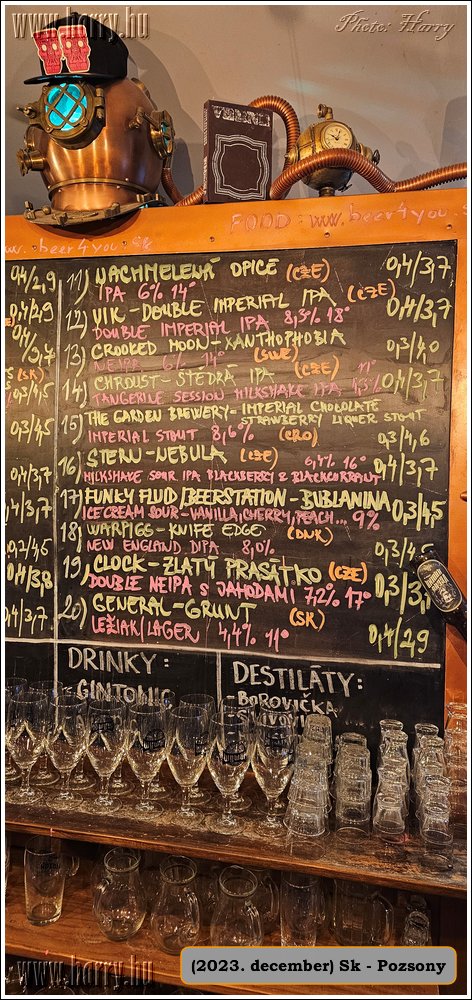 www.harry.hu
Photo: Harry
VERNE
FOOD: www.beer4you.sk
www.beer4you.sk
0,4/2,9
0,4/2,9
(SK)
0,3/4,5
0,3/4,5
0,4/3,7
0,4/3,7
0,2/4,5
0,4/3,8
0,4/3,7
11) NACHMELENÁ OPICE (CZE) 0,4/3,7
IPA 6% 14°
12) VIK - DOUBLE IMPERIAL IPA (CZE) 0,4/3,7
DOUBLE IMPERIAL IPA 8,3% 18°
13) CROOKED MOON - XANTHOPHOBIA 0,3/4,0
NEIPA 6% 14° (SWE)
14) CHROUST - ŠTĚDRÁ IPA (CZE) 11° 0,4/3,7
TANGERINE SESSION MILKSHAKE IPA
15) THE GARDEN BREWERY - IMPERIAL CHOCOLATE
STRAWBERRY LIQUER STOUT
IMPERIAL STOUT 8,6% (CRO) 0,3/4,6
16) STERN - NEBULA (CZE) 16° 0,4/3,7
MILKSHAKE SOUR IPA BLACKBERRY & BLACKCURRANT
17) FUNKY FLUID/BEERSTATION - BUBLANINA 0,3/4,5
ICE CREAM SOUR - VANILLA, CHERRY, PEACH... 9%
18) WARPIGS - KNIFE EDGE (DNK)
NEW ENGLAND DIPA 8,0% 0,3/4,5
19) CLOCK - ZLATÝ PRASÁTKO (CZE)
DOUBLE NEIPA S JAHODAMI 7,2% 17°
20) GENERAL - GRUNT (SK)
LEŽIAK/LAGER 4,4% 11° 0,4/2,9
DRINKY:
- GINTONIC
DESTILÁTY:
- BOROVIČKA
- SLIVOVICA
www.harry.hu
(2023. december) Sk - Pozsony